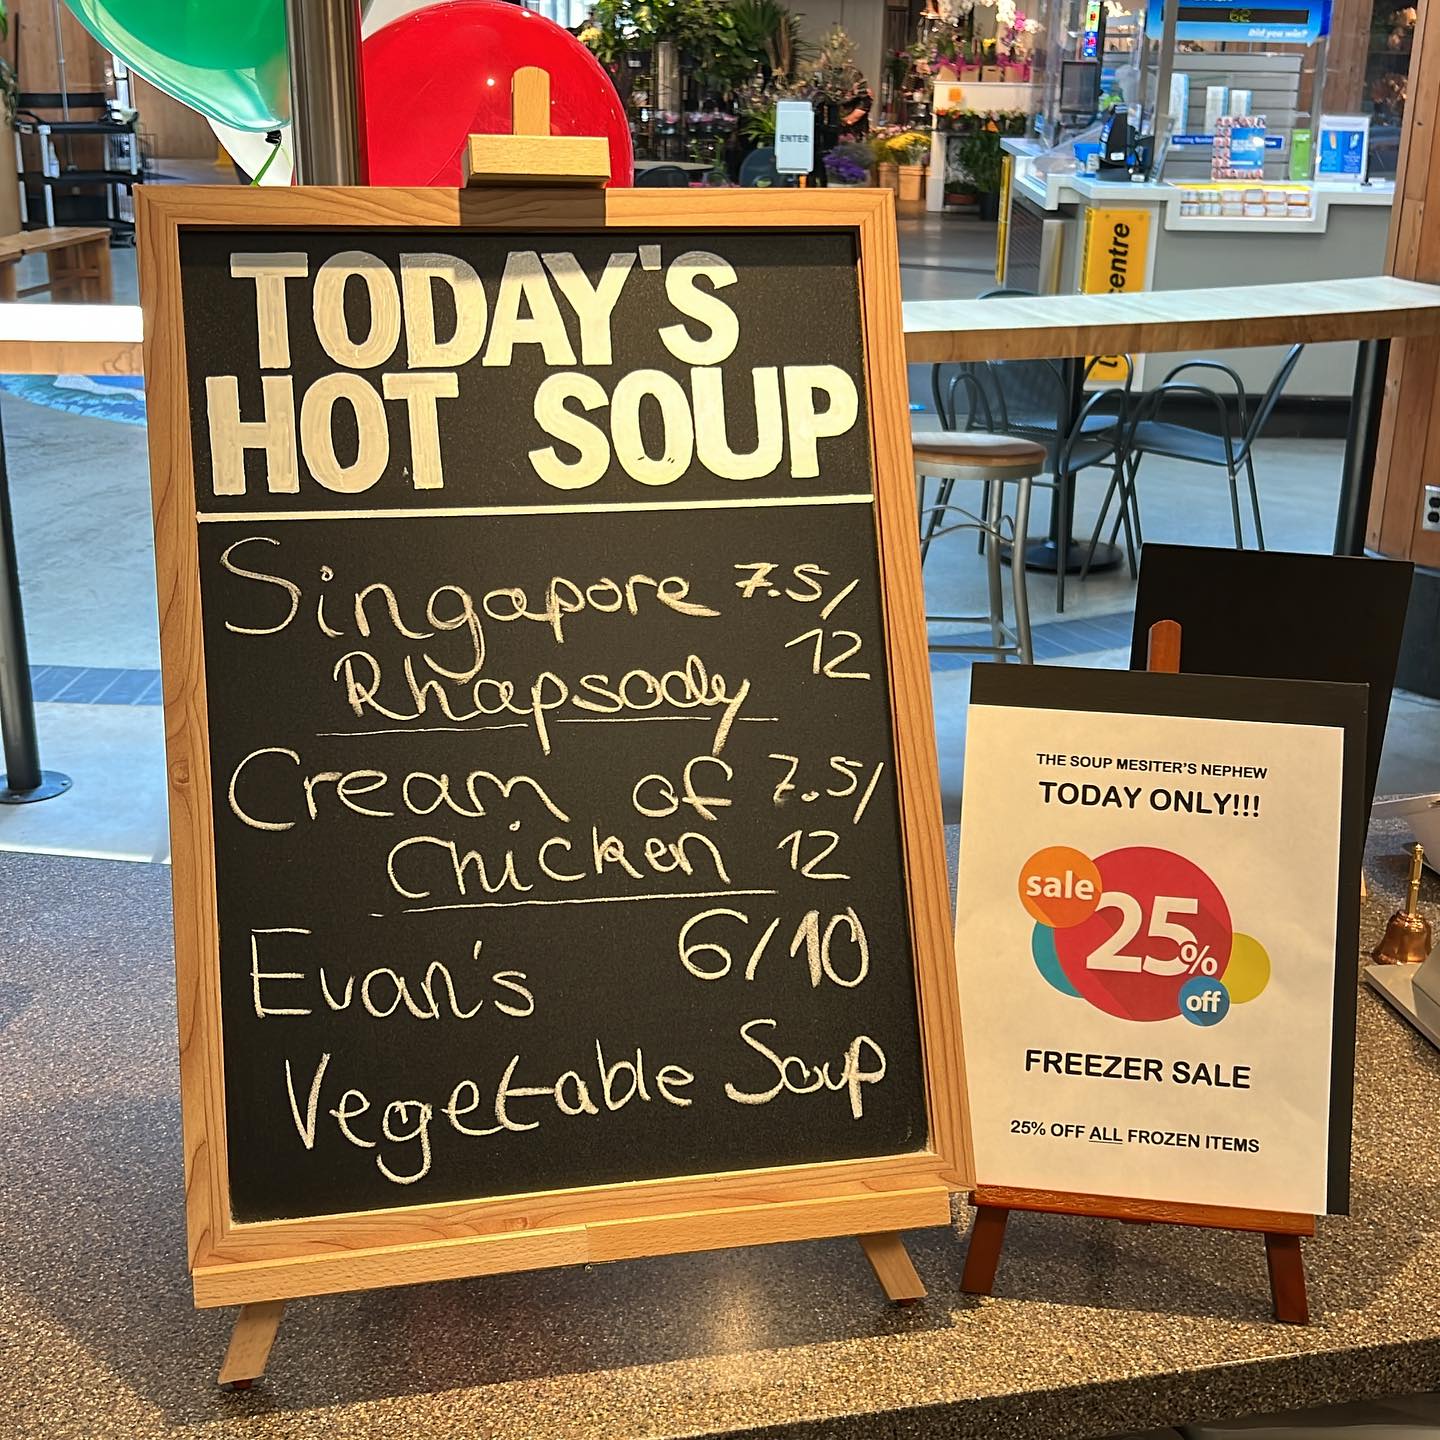 TODAY'S
HOT SOUP
Singapore 7.5/
Rhapsody 12
Cream of 7.5/
Chicken 12
Evan's 6/10
Vegetable Soup
THE SOUP MESITER'S NEPHEW
TODAY ONLY!!!
sale
25%
off
FREEZER SALE
25% OFF ALL FROZEN ITEMS
ENTER
Did you win?
centre